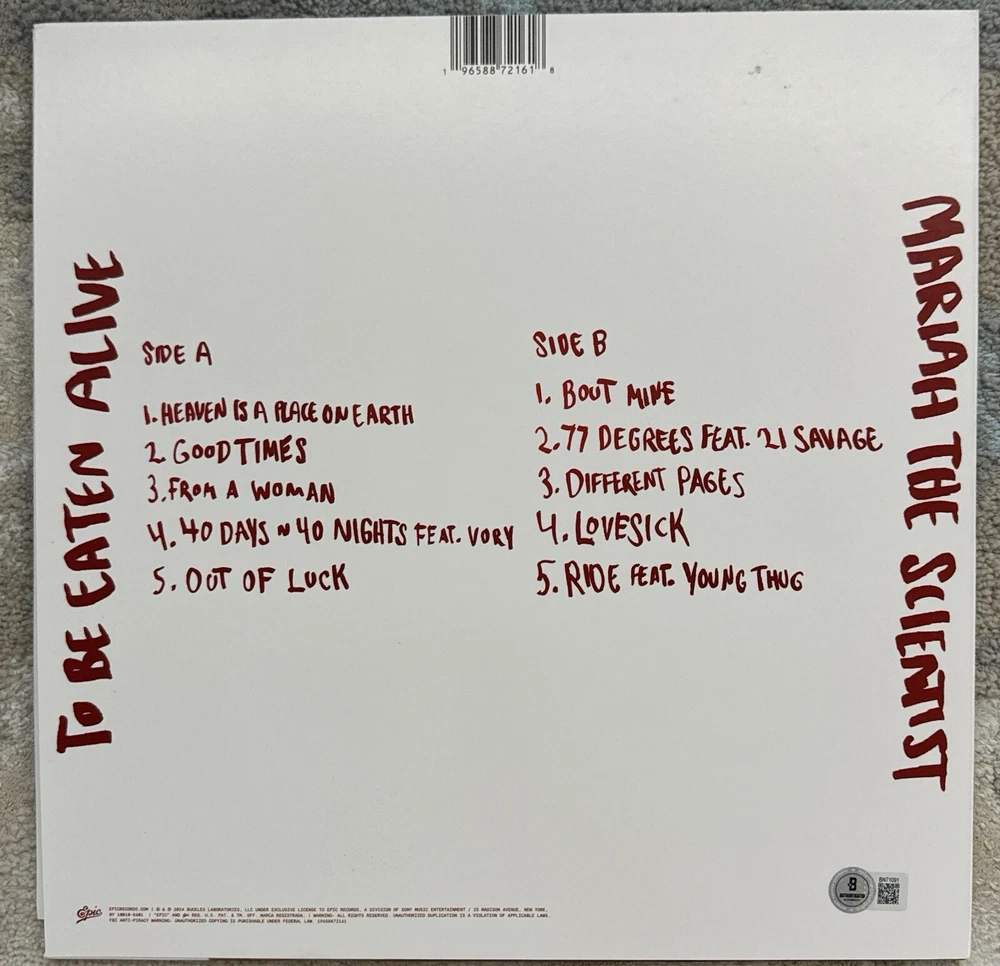 1 96588 72161 8
TO BE EATEN ALIVE
MARIAH THE SCIENTIST
SIDE A
1. HEAVEN IS A PLACE ON EARTH
2. GOOD TIMES
3. FROM A WOMAN
4. 40 DAYS N 40 NIGHTS FEAT. VORY
5. OUT OF LUCK
SIDE B
1. BOUT MINE
2. 77 DEGREES FEAT. 21 SAVAGE
3. DIFFERENT PAGES
4. LOVESICK
5. RIDE FEAT. YOUNG THUG
Epic
EPICRECORDS.COM | ℗ & © 2024 BUCKLES LABORATORIES, LLC UNDER EXCLUSIVE LICENSE TO EPIC RECORDS, A DIVISION OF SONY MUSIC ENTERTAINMENT / 25 MADISON AVENUE, NEW YORK,
NY 10010-8601 | "EPIC" AND REG. U.S. PAT. & TM. OFF. MARCA REGISTRADA. | WARNING: ALL RIGHTS RESERVED. UNAUTHORIZED DUPLICATION IS A VIOLATION OF APPLICABLE LAWS.
FBI ANTI-PIRACY WARNING: UNAUTHORIZED COPYING IS PUNISHABLE UNDER FEDERAL LAW. 19658872161
B
BN71091